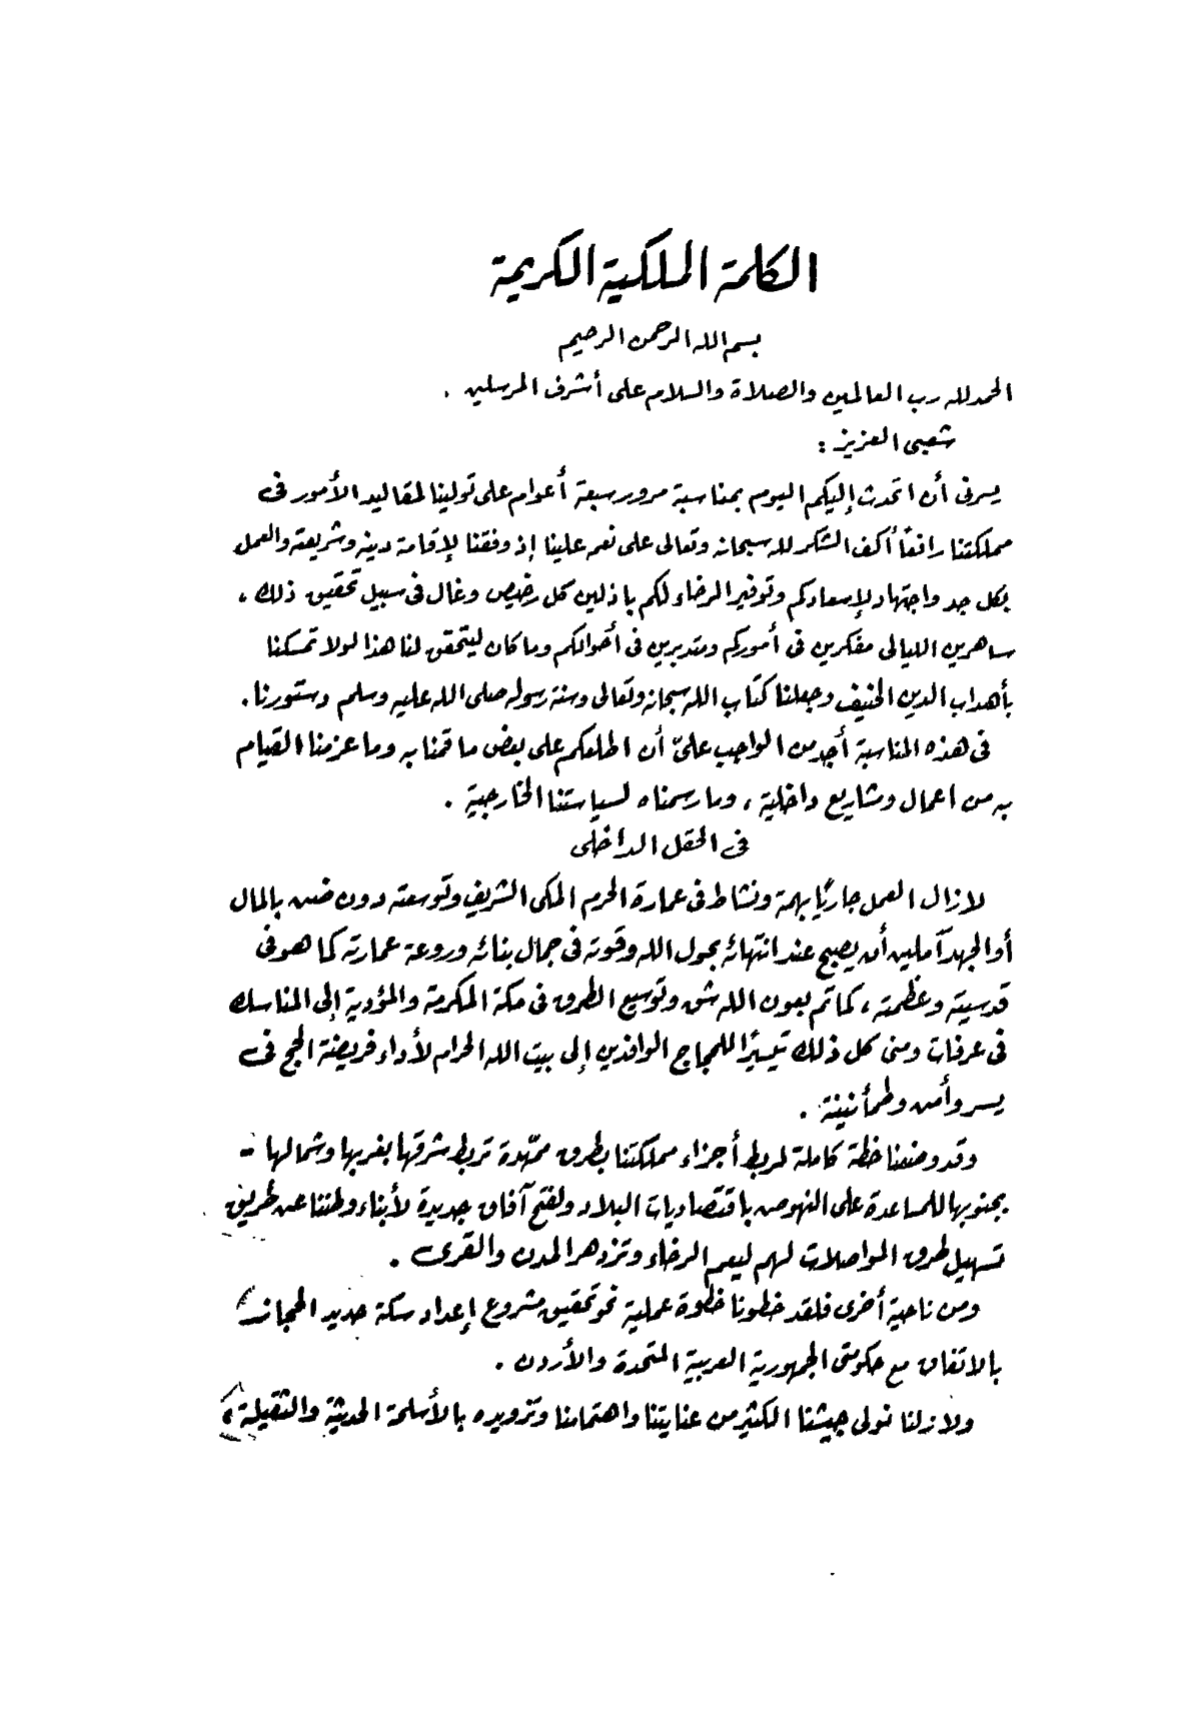 الكلمة الملكية الكريمة
بسم الله الرحمن الرحيم
الحمد لله رب العالمين والصلاة والسلام على أشرف المرسلين .
شعبى العزيز :
يسرنى أن اتحدث إليكم اليوم بمناسبة مرور سبعة أعوام على تولينا لمقاليد الأمور فى
مملكتنا رافعاً أكف الشكر لله سبحانه وتعالى على نعمه علينا إذ وفقنا لإقامة دينه وشريعته والعمل
بكل جد واجتهاد لإسعادكم وتوفير الرخاء لكم باذلين كل رخيص وغال فى سبيل تحقيق ذلك ،
ساهرين الليالى مفكرين فى أموركم ومتدبرين فى أحوالكم وما كان ليتحقق لنا هذا لولا تمسكنا
بأهداب الدين الحنيف وجعلنا كتاب الله سبحانه وتعالى وسنة رسوله صلى الله عليه وسلم دستورنا .
فى هذه المناسبة أجد من الواجب علىّ أن اطلعكم على بعض ما قمنا به وما عزمنا القيام
به من اعمال ومشاريع داخلية ، وما رسمناه لسياستنا الخارجية .
فى الحقل الداخلى
لازال العمل جاريًا بهمة ونشاط فى عمارة الحرم المكى الشريف وتوسعته دون ضن بالمال
أو الجهد آملين أن يصبح عند انتهائه بحول الله وقوته فى جمال بنائه وروعة عمارته كما هو فى
قدسيته وعظمته ، كما تم بعون الله شق وتوسيع الطرق فى مكة المكرمة والمؤدية إلى المناسك
فى عرفات ومنى كل ذلك تيسيرًا للحجاج الوافدين إلى بيت الله الحرام لأداء فريضة الحج فى
يسر وأمن وطمأنينة .
وقد وضعنا خطة كاملة لربط أجزاء مملكتنا بطرق ممهّدة تربط شرقها بغربها وشمالها -
بجنوبها للمساعدة على النهوض باقتصاديات البلاد ولفتح آفاق جديدة لأبناء وطننا عن طريق
تسهيل طرق المواصلات لهم ليعم الرخاء وتزدهر المدن والقرى .
ومن ناحية أخرى فلقد خطونا خطوة عملية نحو تحقيق مشروع إعداد سكة حديد الحجاز
بالاتفاق مع حكومتى الجمهورية العربية المتحدة والأردن .
ولازلنا نولى جيشنا الكثير من عنايتنا واهتمامنا وتزويده بالأسلحة الحديثة والثقيلة ،